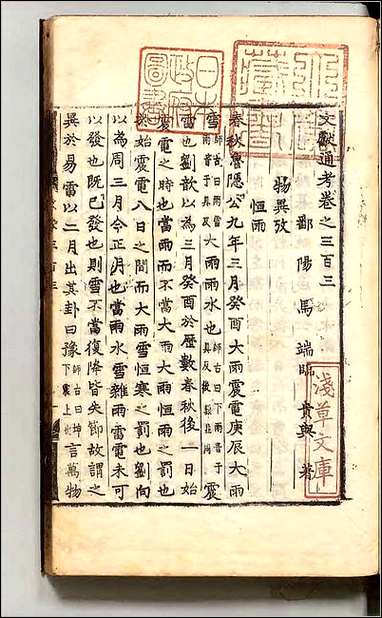 文獻通考卷之三百三
鄱陽馬端臨貴與著
物異攷
恒雨
春秋魯隱公九年三月癸酉大雨震電庚辰大雨
雪大雨雨水也震
雷也劉歆以為三月癸酉於歷數春秋後一日始
震電之時也當雨而不當大雨大雨恒雨之罰也
於始震電八日之間而大雨雪恒寒之罰也劉向
以為周三月今正月也當雨水雪雜雨雷電未可
以發也既已發也則雪不當復降皆失節故謂之
異於易雷以二月出其卦曰豫師古曰坤下震上也言萬物
日本政府圖書
淺草文庫